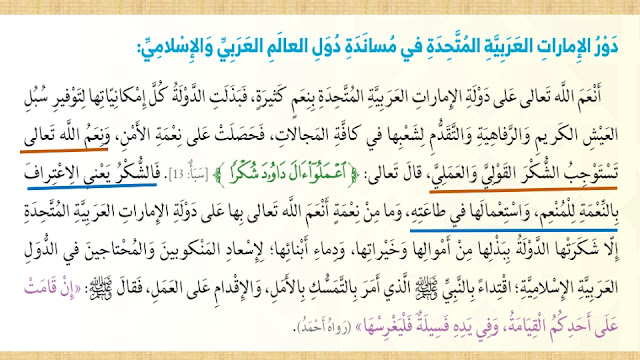 دَوْرُ الإِماراتِ العَرَبِيَّةِ المُتَّحِدَةِ في مُسانَدَةِ دُوَلِ العالَمِ العَرَبِيِّ وَالإِسْلامِيِّ:
أَنْعَمَ اللَّه تَعالى عَلى دَوْلَةِ الإِماراتِ العَرَبِيَّةِ المُتَّحِدَةِ بِنِعَمٍ كَثيرَةٍ، فَبَذَلَتِ الدَّوْلَةُ كُلَّ إِمْكانِيّاتِها لِتَوْفيرِ سُبُلِ
العَيْشِ الكَريمِ وَالرَّفاهِيَةِ وَالتَّقَدُّمِ لِشَعْبِها في كافَّةِ المَجالاتِ، فَحَصَلَتْ عَلى نِعْمَةِ الأَمْنِ، وَنِعَمُ اللَّه تَعالى
تَسْتَوْجِبُ الشُّكْرَ القَوْلِيَّ وَالعَمَلِيَّ، قالَ تَعالى: ﴿ٱعْمَلُوٓا۟ ءَالَ دَاوُۥدَ شُكْرًا﴾ [سَبَأٌ: 13]. فَالشُّكْرُ يَعْني الِاعْتِرافَ
بِالنِّعْمَةِ لِلْمُنْعِمِ، وَاسْتِعْمالَها في طاعَتِهِ، وَما مِنْ نِعْمَةٍ أَنْعَمَ اللَّه تَعالى بِها عَلى دَوْلَةِ الإِماراتِ العَرَبِيَّةِ المُتَّحِدَةِ
إِلّا شَكَرَتْها الدَّوْلَةُ بِبَذْلِها مِنْ أَمْوالِها وَخَيْراتِها، وَدِماءِ أَبْنائِها؛ لِإِسْعادِ المَنْكوبينَ وَالمُحْتاجينَ في الدُّوَلِ
العَرَبِيَّةِ الإِسْلامِيَّةِ؛ اقْتِداءً بِالنَّبِيِّ ﷺ الَّذي أَمَرَ بِالتَّمَسُّكِ بِالأَمَلِ، وَالإِقْدامِ عَلى العَمَلِ، فَقالَ ﷺ: «إِنْ قامَتْ
عَلى أَحَدِكُمُ الْقِيامَةُ، وَفي يَدِهِ فَسيلَةٌ فَلْيَغْرِسْها» (رَواهُ أَحْمَدُ).